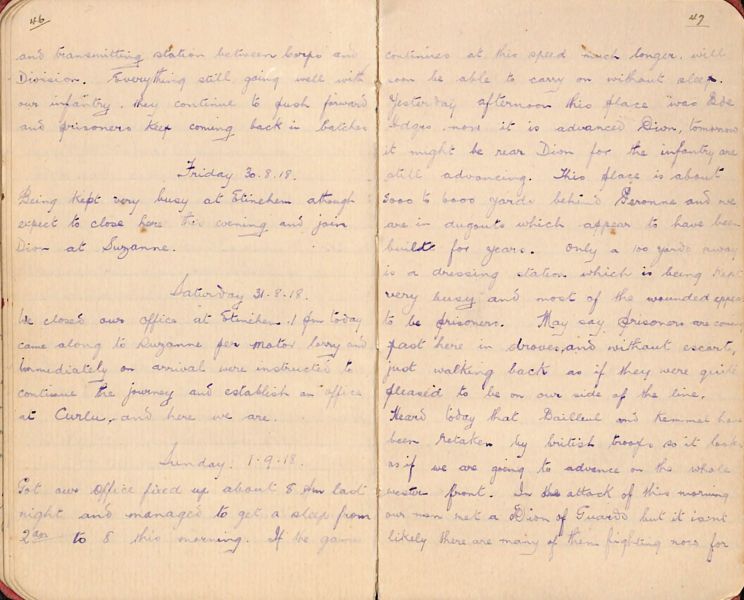 46
and transmitting station between Corps and
Division. Everything still going well with
our infantry, they continue to push forward
and prisoners keep coming back in batches
Friday 30.8.18.
Being kept very busy at Etinehem athough
expect to close here this evening and join
Dion at Suzanne.
Saturday 31.8.18.
We closed our office at Etinehem 1 pm today
came along to Suzanne per motor lorry and
immediately on arrival were instructed to
continue the journey and establish an office
at Curlu, and here we are.
Sunday. 1.9.18.
Got our office fixed up about 8 pm last
night and managed to get a sleep from
2 am to 8 this morning. If the game
47
continues at this speed much longer, will
soon be able to carry on without sleep.
Yesterday afternoon this place was Bde
Hdqrs now it is advanced Dion, tomorrow
it might be rear Dion for the infantry are
still advancing. This place is about
5000 to 6000 yards behind Peronne and we
are in dugouts which appear to have been
built for years. Only a 100 yards away
is a dressing station which is being kept
very busy and most of the wounded appear
to be prisoners. May say prisoners are coming
past here in droves, and without escorts,
just walking back as if they were quite
pleased to be on our side of the line.
Heard today that Bailleul and Kemmel have
been retaken by british troops so it looks
as if we are going to advance on the whole
western front. In the attack of this morning
our men met a Dion of Guards but it isent
likely there are many of them fighting now for